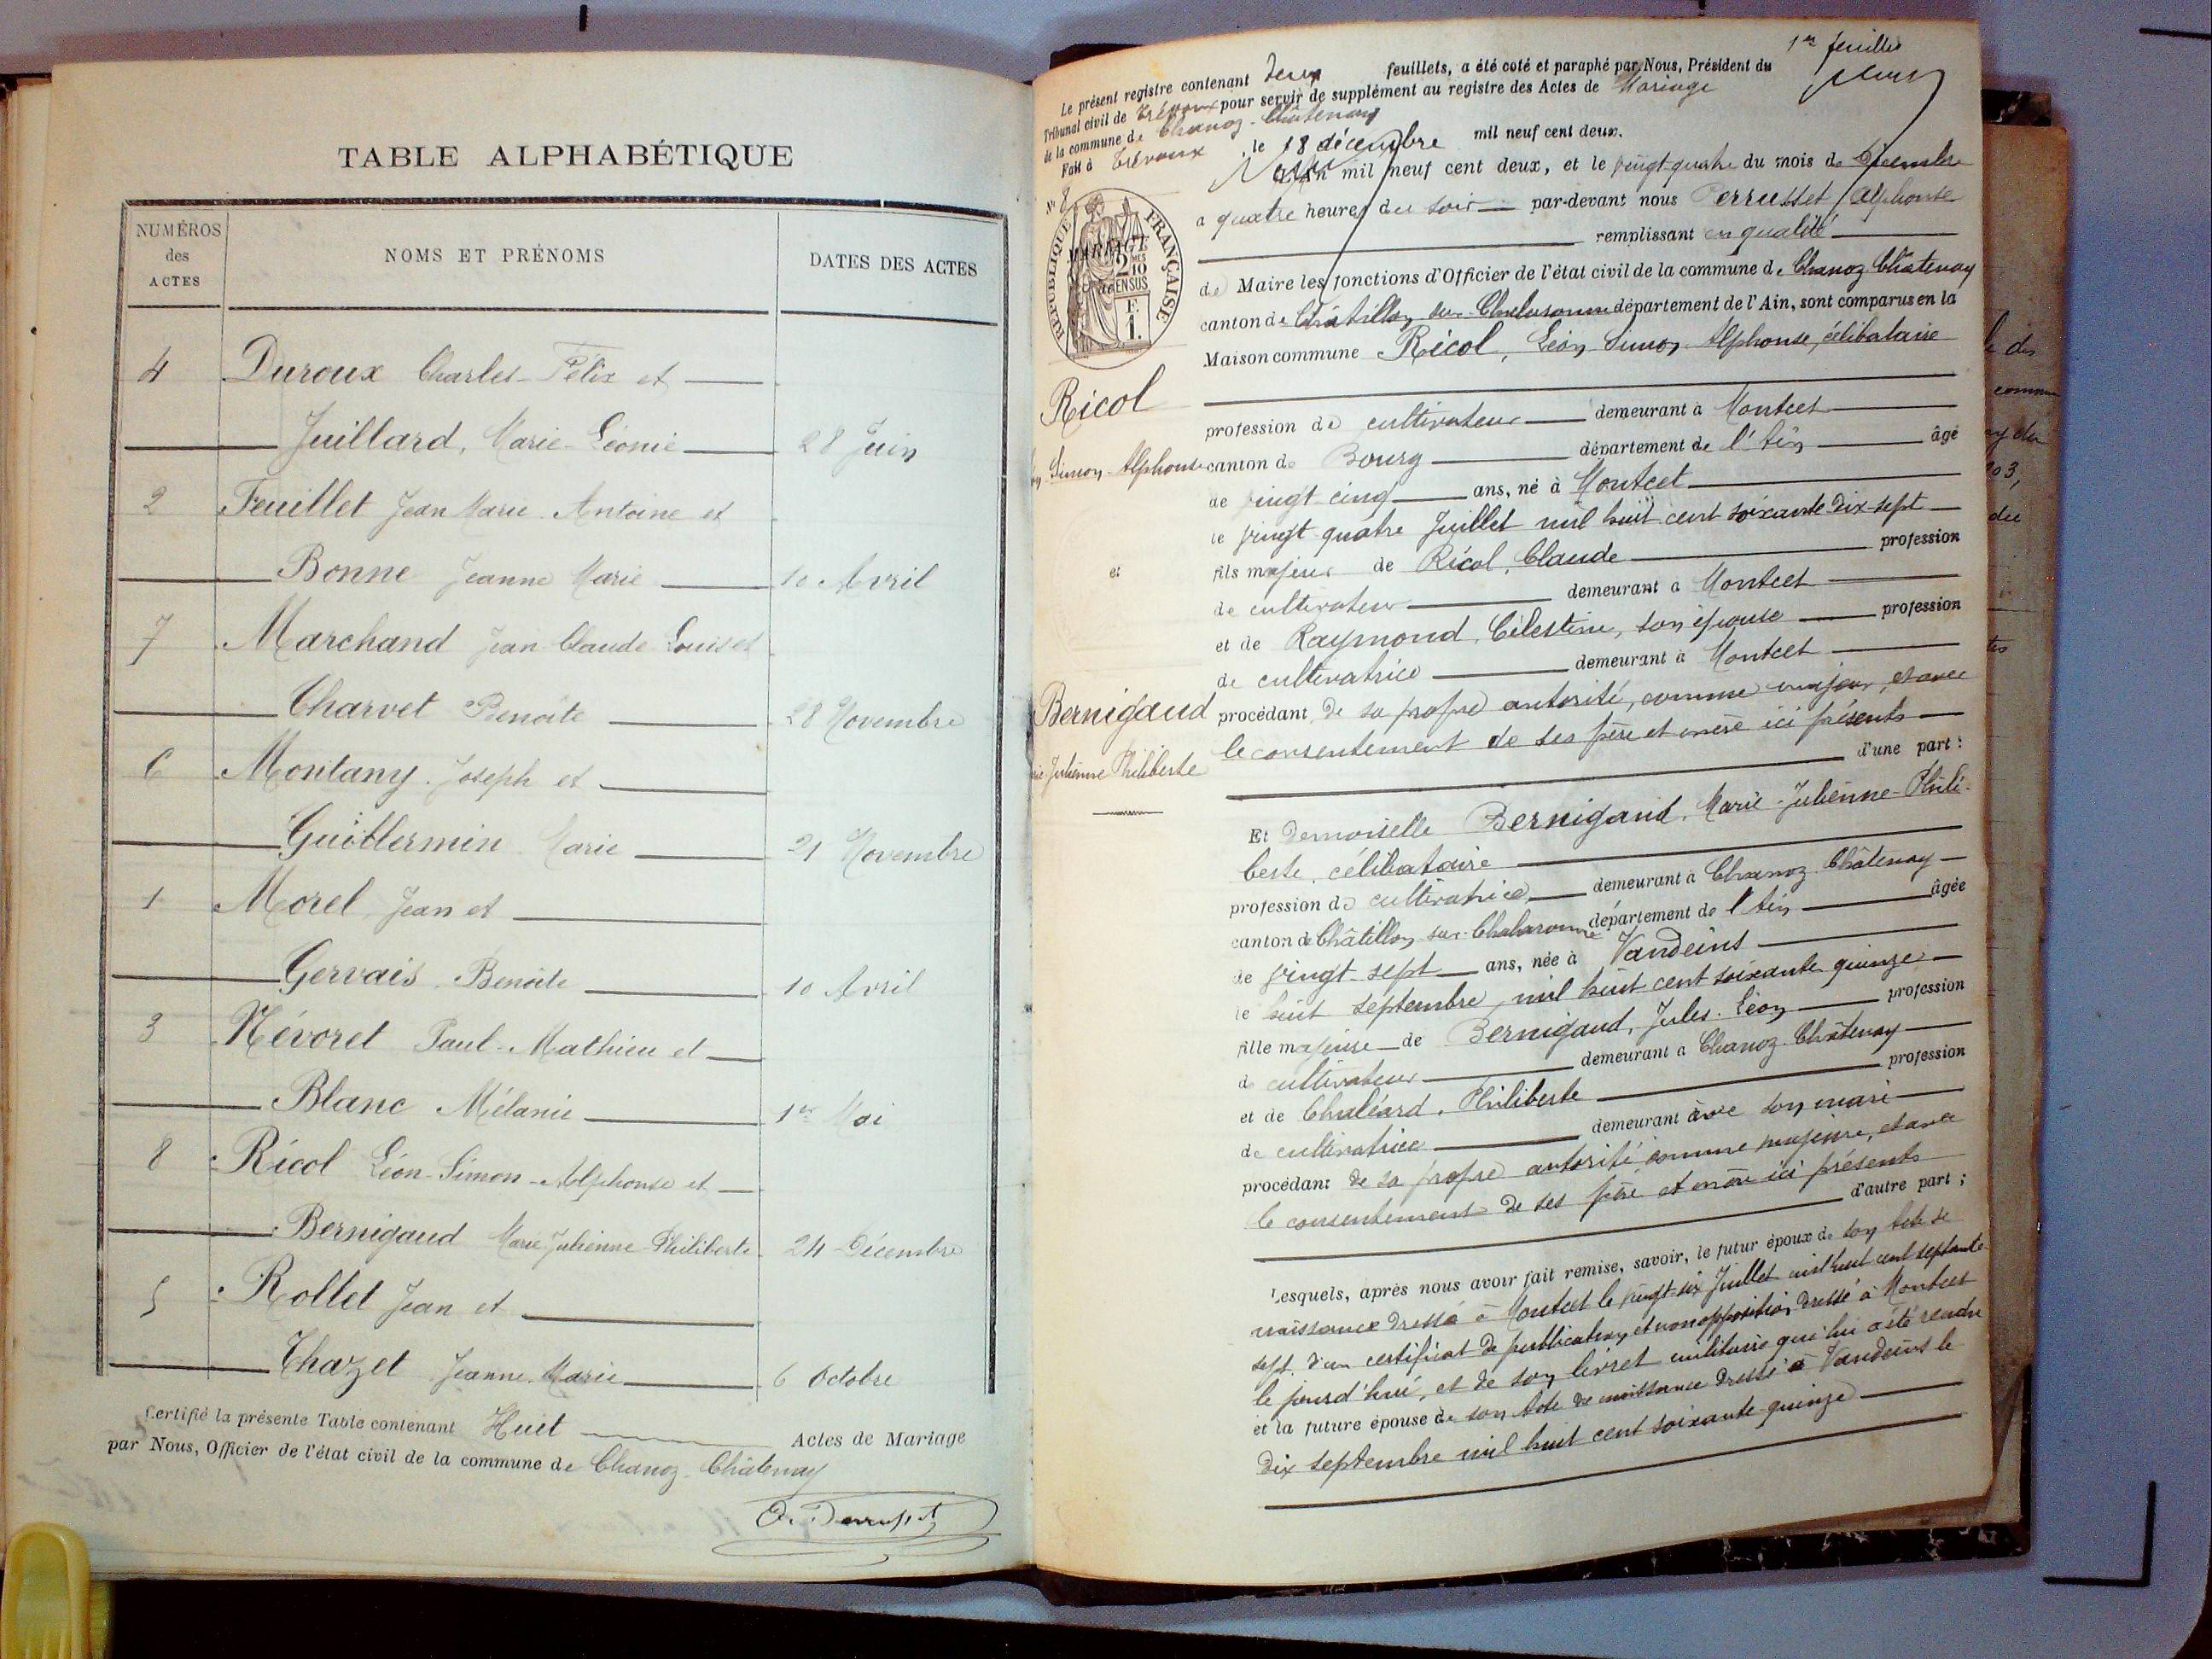 TABLE ALPHABÉTIQUE
NUMÉROS des ACTES
NOMS ET PRÉNOMS
DATES DES ACTES
4 Duroux Charles-Félix et
Juillard, Marie-Léonie 28 Juin
2 Feuillet Jean Marie Antoine et
Bonne Jeanne Marie 10 Avril
7 Marchand Jean Claude Louis et
Charvet Benoite 28 Novembre
6 Montany Joseph et
Guillermin Marie 21 Novembre
1 Morel Jean et
Gervais, Benoite 10 Avril
3 Névoret Paul-Mathieu et
Blanc Mélanie 1er Mai
8 Ricol Léon-Simon-Alphonse et
Bernigaud Marie Julienne Philiberte 24 Décembre
5 Rollet Jean et
Chazet Jeanne Marie 6 Octobre
Certifié la présente Table contenant Huit Actes de Mariage
par Nous, Officier de l'état civil de la commune de Chanoz-Châtenay
1er feuillet
Le présent registre contenant deux feuillets, a été coté et paraphé par Nous, Président du
Tribunal civil de Trévoux pour servir de supplément au registre des Actes de Mariage
de la commune de Chanoz-Châtenay
Fait à Trévoux, le 18 décembre mil neuf cent deux.
N° 8
RÉPUBLIQUE FRANÇAISE
MARIAGE
2 MES 10
EN SUS
F.
1.
Ricol
Simon-Alphonse
et
Bernigaud
Julienne Philiberte
L'An mil neuf cent deux, et le vingt-quatre du mois de Décembre
a quatre heures du soir par-devant nous Perrusset Alphonse
remplissant en qualité
de Maire les fonctions d'Officier de l'état civil de la commune de Chanoz Châtenay
canton de Châtillon sur Chalaronne département de l'Ain, sont comparus en la
Maison commune Ricol, Léon Simon Alphonse, célibataire
profession de cultivateur demeurant à Montcet
canton de Bourg département de l'Ain âgé
de vingt cinq ans, né à Montcet
le vingt quatre Juillet mil huit cent soixante dix-sept
fils majeur de Ricol, Claude profession
de cultivateur demeurant à Montcet
et de Raymond, Célestine, son épouse profession
de cultivatrice demeurant à Montcet
procédant de sa propre autorité, comme majeur, et avec
le consentement de ses père et mère ici présents
d'une part :
Et Demoiselle Bernigaud, Marie-Julienne-Phili-
berte, célibataire
profession de cultivatrice demeurant à Chanoz Châtenay
canton de Châtillon sur Chalaronne département de l'Ain âgée
de vingt sept ans, née à Vandeins
le huit septembre, mil huit cent soixante quinze
fille majeure de Bernigaud, Jules-Léon profession
de cultivateur demeurant à Chanoz Châtenay
et de Chaléard, Philiberte profession
de cultivatrice demeurant avec son mari
procédant de sa propre autorité comme majeure, et avec
le consentement de ses père et mère ici présents
d'autre part ;
Lesquels, après nous avoir fait remise, savoir, le futur époux de son acte de
naissance dressé à Montcet le vingt-six Juillet mil huit cent septante-
sept, d'un certificat de publication et non opposition dressé à Montcet
le jourd'hui, et de son livret militaire qui lui a été rendu
et la future épouse de son Acte de naissance dressé à Vandeins le
dix septembre mil huit cent soixante-quinze